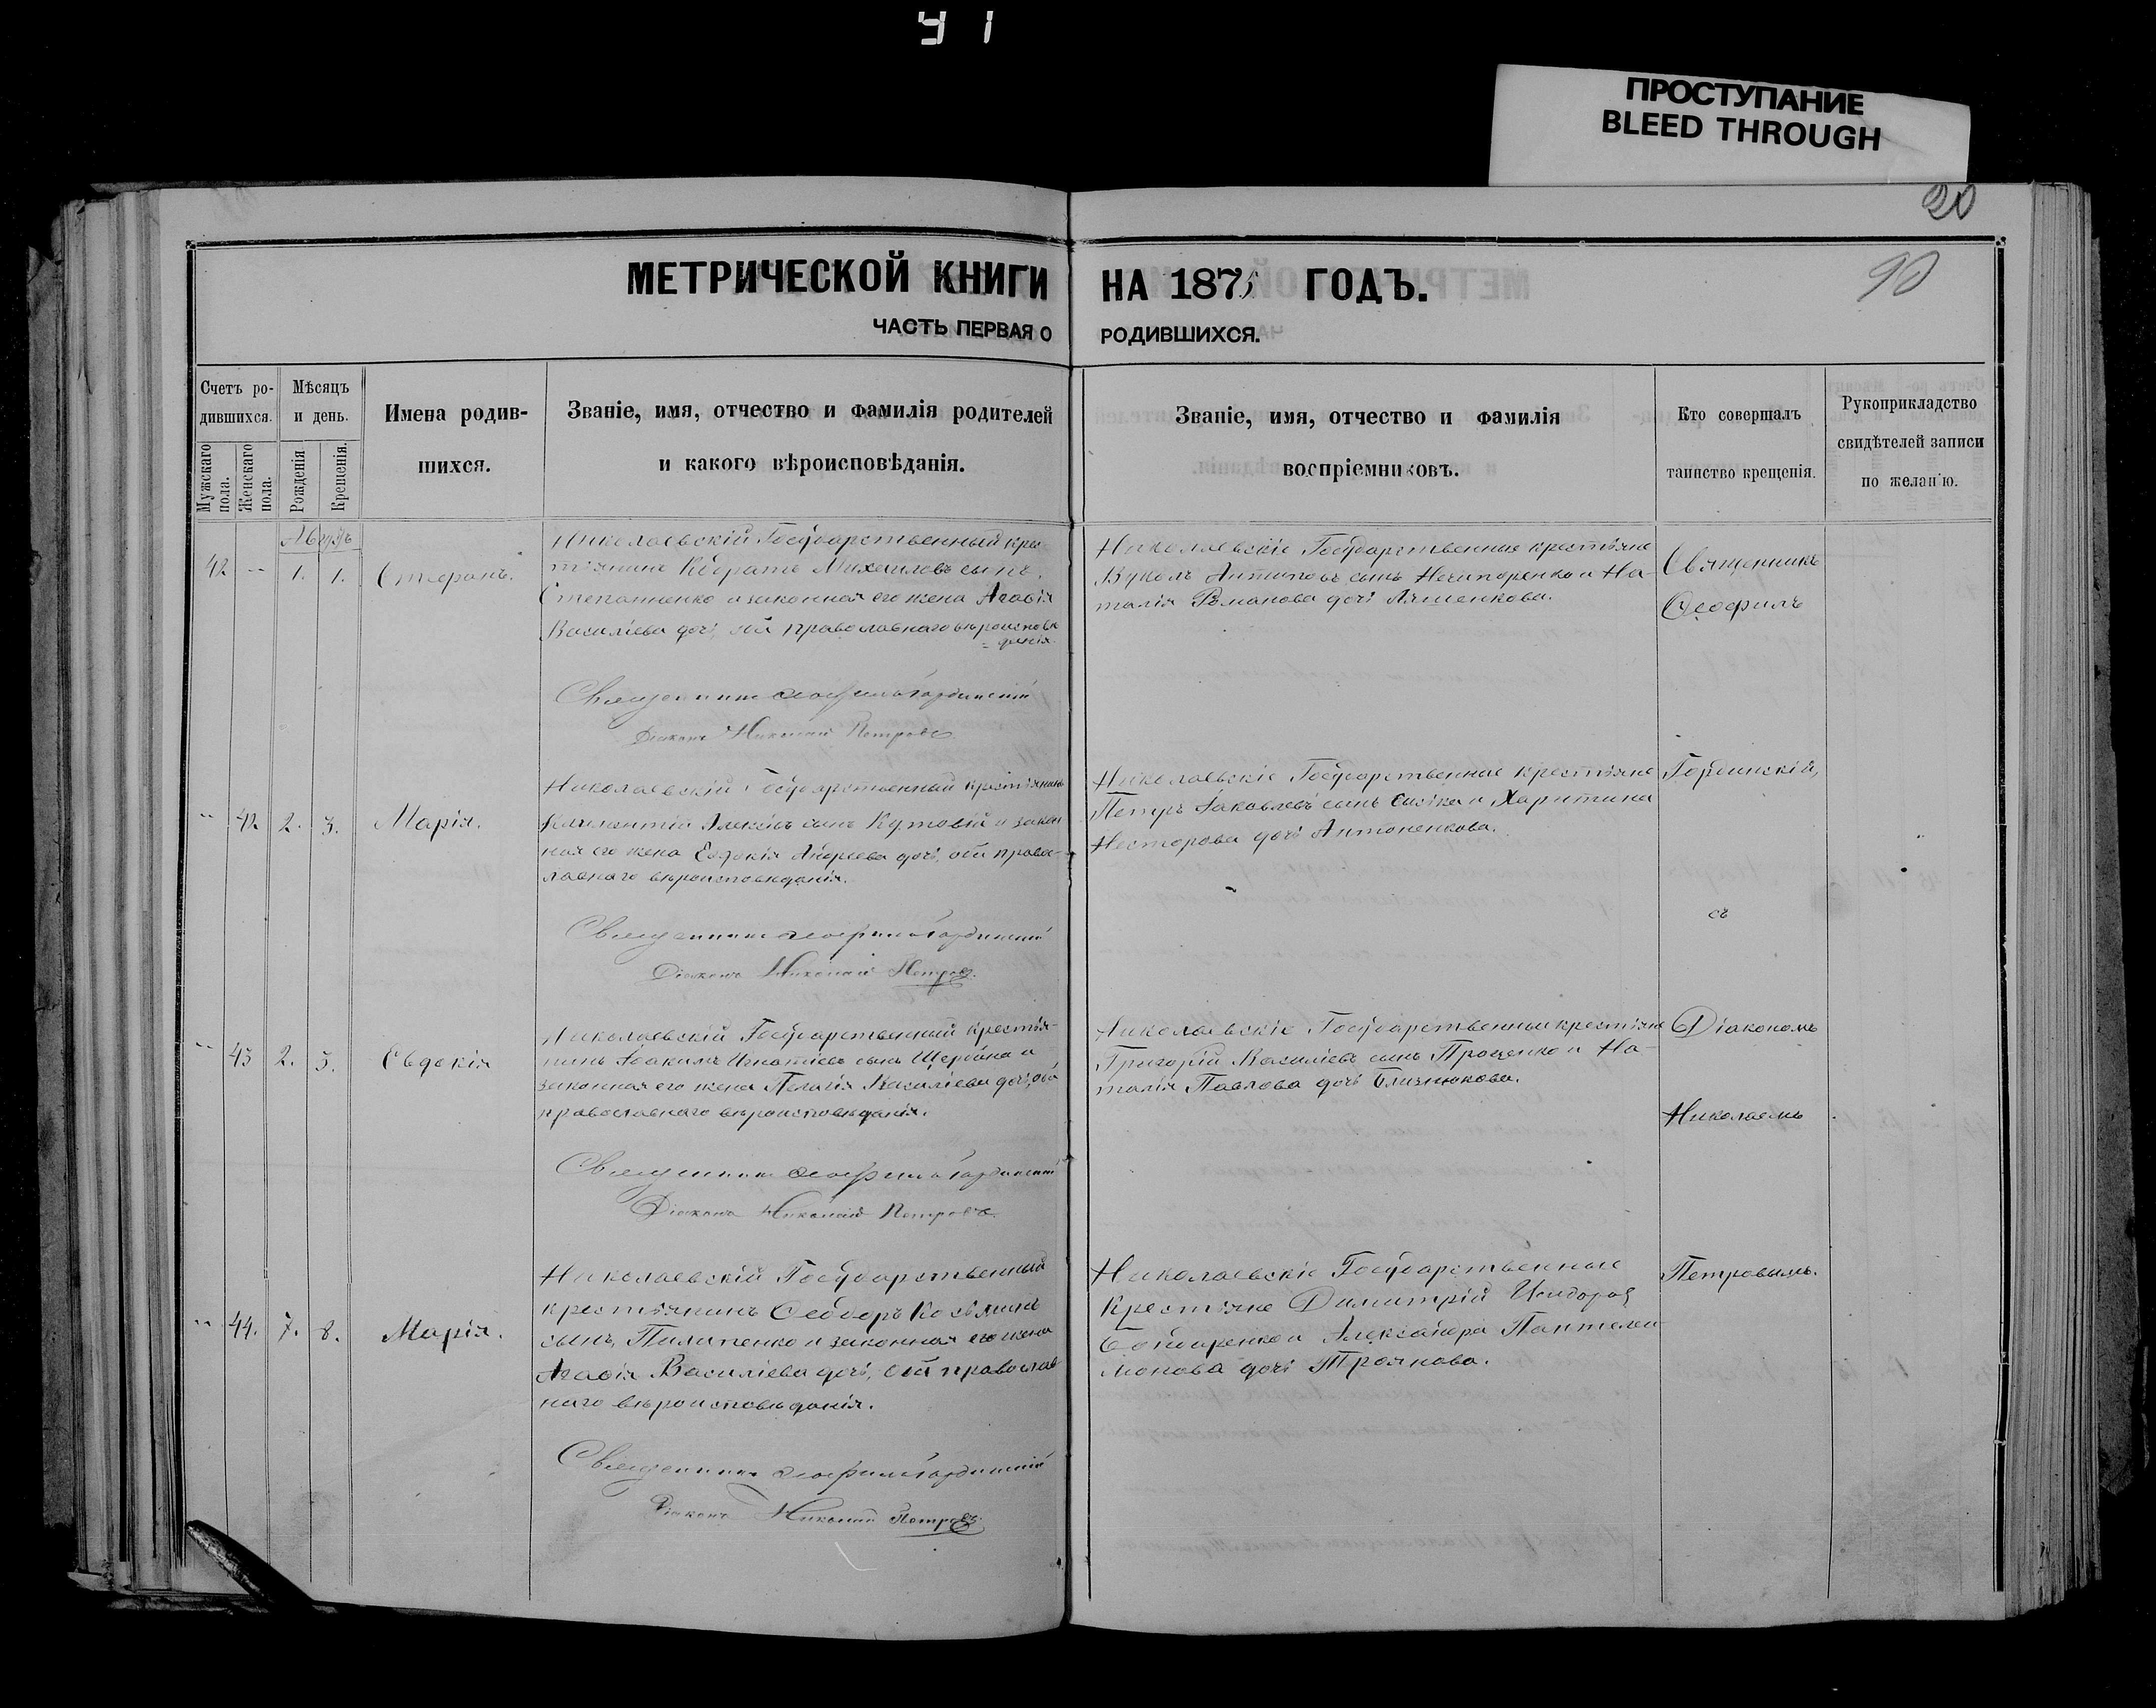 91
ПРОСТУПАНИЕ
BLEED THROUGH
20
90
МЕТРИЧЕСКОЙ КНИГИ НА 1875 ГОДЪ.
ЧАСТЬ ПЕРВАЯ О РОДИВШИХСЯ.
Счетъ ро-
дившихся.
Мужскаго пола.
Женскаго пола.
Мѣсяцъ
и день.
Рожденія
Крещенія.
Имена родив-
шихся.
Званіе, имя, отчество и фамилія родителей
и какого вѣроисповѣданія.
Званіе, имя, отчество и фамилія
воспріемниковъ.
Кто совершалъ
таинство крещенія.
Рукоприкладство
свидѣтелей записи
по желанію.
42 -- 1. 1. Стефанъ.
Николаевскій Государственный крес-
тьянинъ Кодратъ Михаиловъ сынъ,
Степаненко и законная его жена Агафія
Василіева дочь, оба православнаго вѣроисповѣ
=данія.
Священникъ Ѳеофилъ Гординскій
Діаконъ Николай Петровъ
Николаевскіе Государственные крестьяне
Вуколъ Антиповъ сынъ Нечипоренко и На-
талія Романова дочь Ляшенкова.
Священникъ
Ѳеофилъ
" 42 2. 3. Марія.
Николаевскій Государственный крестьянинъ
Климентій Алексѣевъ сынъ Кутовій и закон
ная его жена Евдокія Андреева дочь, оба правос-
лавнаго вѣроисповѣданія.
Священникъ Ѳеофилъ Гординскій
Діаконъ Николай Петровъ
Николаевскіе Государственные крестьяне
Петръ Яковлевъ сынъ и Харитина
Несторова дочь Антоненкова.
Гординскій,
съ
" 43 2. 3. Евдокія
Николаевскій Государственный крестья-
нинъ Іоакимъ Игнатіевъ сынъ Щербина и
законная его жена Пелагія Василіева дочь, оба
православнаго вѣроисповѣданія.
Священникъ Ѳеофилъ Гординскій
Діаконъ Николай Петровъ
Николаевскіе Государственные крестьяне
Григорій Василіевъ сынъ Проценко и На-
талія Павлова дочь Близнюкова.
Діакономъ
Николаемъ
" 44. 7. 8. Марія.
Николаевскій Государственный
крестьянинъ Ѳеодоръ Косьминъ
сынъ, Пилипенко и законная его жена
Агафія Василіева дочь, оба православ
наго вѣроисповѣданія.
Священникъ Ѳеофилъ Гординскій
Діаконъ Николай Петровъ
Николаевскіе Государственные
крестьяне Димитрій Исидоровъ
Бондаренко и Александра Пантелеи-
монова дочь Троянова.
Петровымъ.